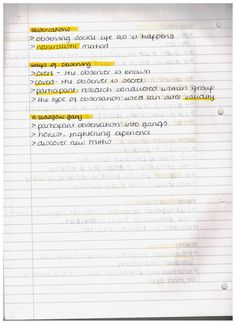 observations
> observing social life as it happens
> naturalistic method
ways of observing
> overt - the observer is known
> covert - the observer is secret
> participant - research conducted within group
> the type of observation used can alter validity
A Glasgow gang
> participant observation into gangs
> honest, frightening experience
> discover new truths